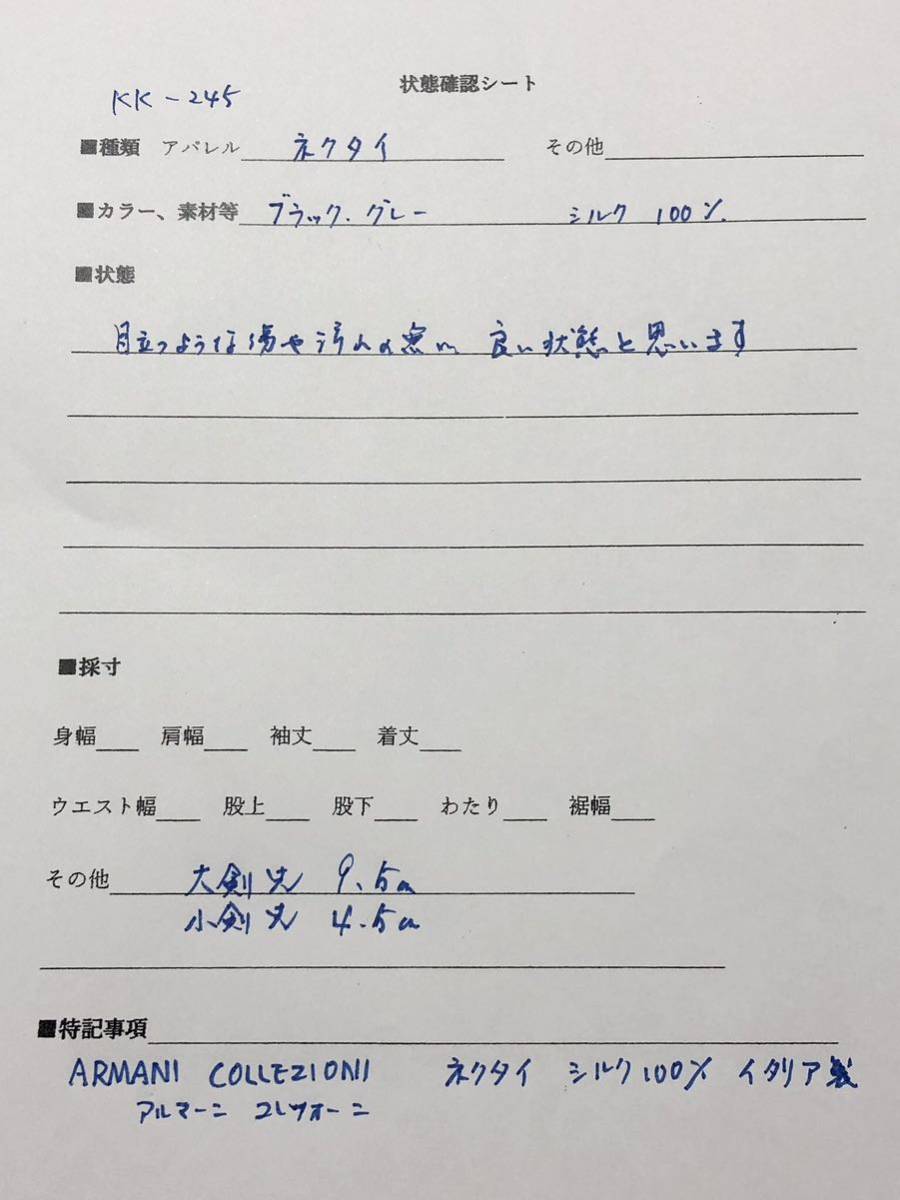 状態確認シート
KK-245
■種類 アパレル ネクタイ その他
■カラー、素材等 ブラック.グレー シルク 100%
■状態
目立つような傷や汚れの無い 良い状態と思います
■採寸
身幅 肩幅 袖丈 着丈
ウエスト幅 股上 股下 わたり 裾幅
その他 大剣先 9.5cm
小剣先 4.5cm
■特記事項
ARMANI COLLEZIONI ネクタイ シルク100% イタリア製
アルマーニ コレツォーニ